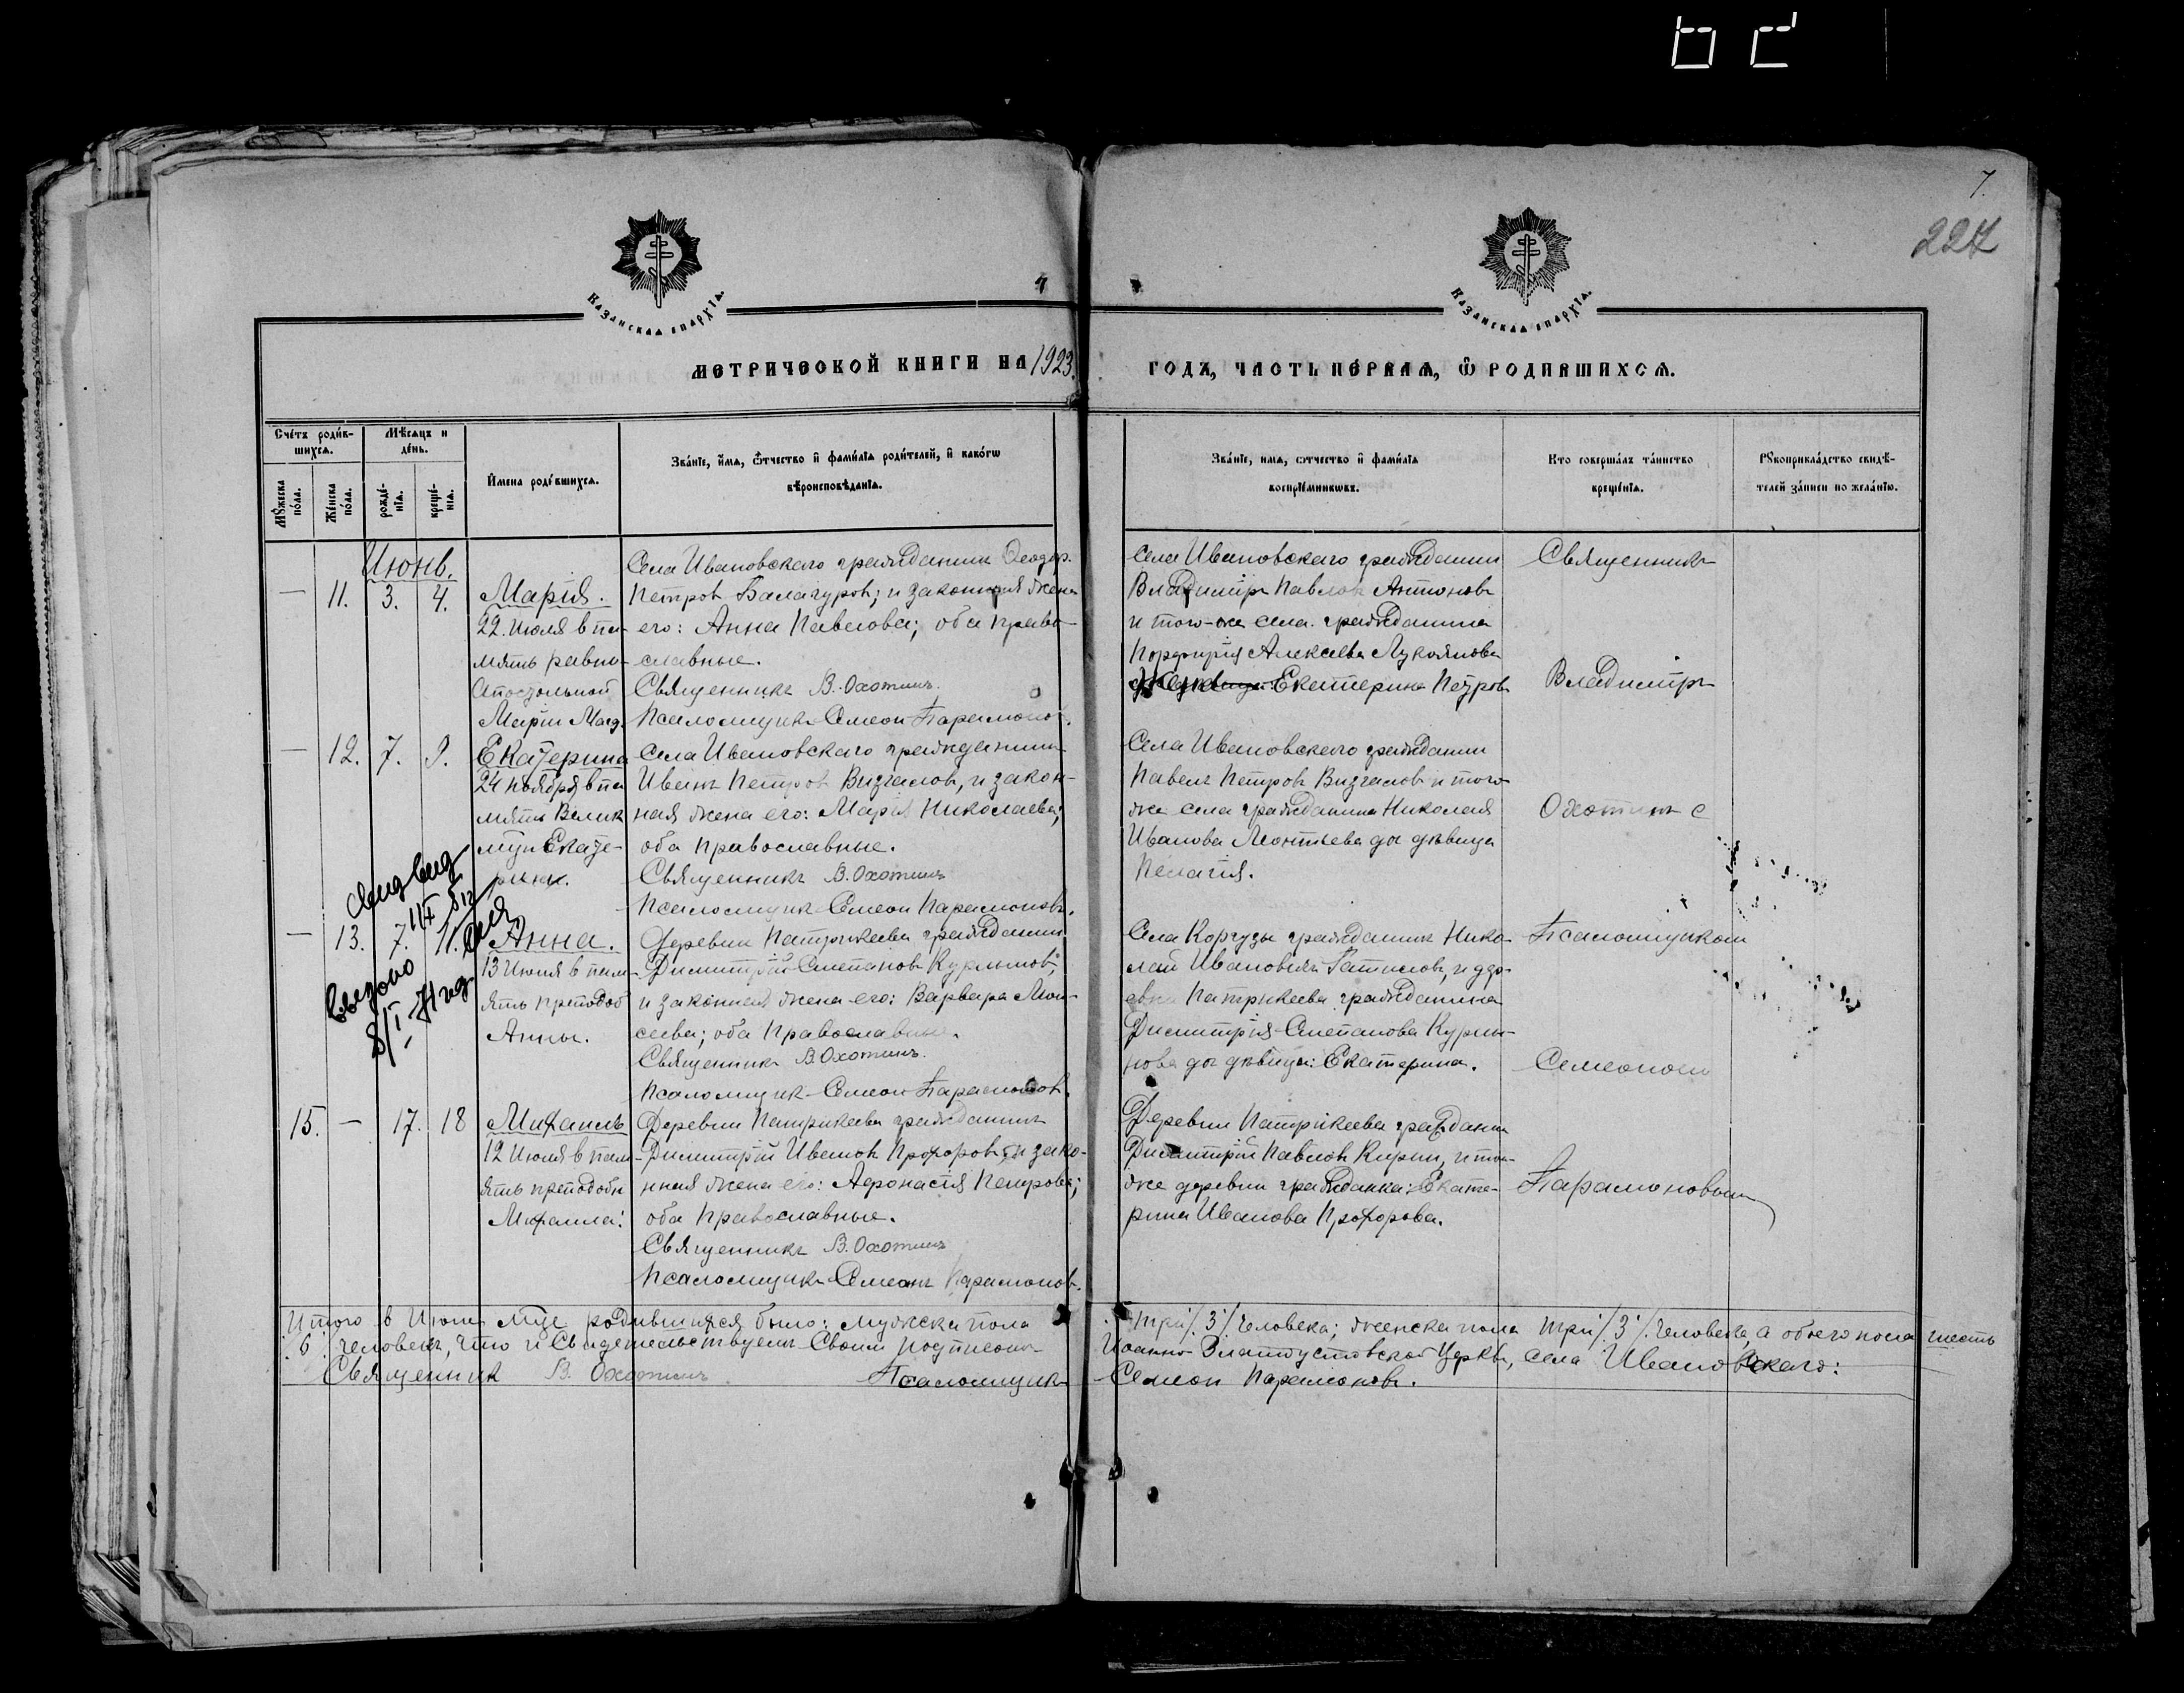 7.
224
Казанская епархїя.
Казанская епархїя.
метрической книги на 1923
годъ, часть первая, ѡ родившихся.
Счетъ родив-
шихся.
Мѣсяцъ и
день.
Мꙋжеска пола.
Женска пола.
рожде-
нїя.
креще-
нїя.
Имена родившихся.
Званїе, имя, ѻтчество и фамилїя родителей, и какогѡ
вѣроисповѣданїя.
Званїе, имя, ѻтчество и фамилїя
воспрїемниковъ.
Кто совершалъ таинство
крещенїя.
Рꙋкоприкладство свидѣ-
телей записи по желанїю.
Июнь.
— 11. 3. 4.
Марія.
22. Июля в па-
мять равно-
Апостольной
Маріи Магд.
Села Ивановскаго гражданин Феодор.
Петров Балагуров; и законная жена
его: Анна Павлова; оба право-
славные.
Священникъ В. Охотинъ.
Псаломщик Симеон Парамонов.
Села Ивановскаго гражданин
Владимір Павлов Антонов
и того-же села гражданина
Порфирія Алексеева Лукоянова
Екатерина Петров
— 12. 7. 8.
Екатерина
24 ноября в па
мять Велик
муч Екате-
рины.
Села Ивановскаго гражданин
Иван Петров Визгалов, и закон-
ная жена его: Марія Николаева;
оба православные.
Священникъ В. Охотинъ
Псаломщик Симеон Парамонов.
Села Ивановскаго гражданин
Павелъ Петров Визгалов и того-
же села гражданина Николая
Иванова Леонтьева доч дѣвица
Пелагия.
— 13. 7. 11.
Анна.
13 Июня в пам-
ять преподоб
Анны.
Деревни Патрикеева гражданин
Димитрій Степанов Курынов;
и законная жена его: Варвара Мои-
сеева; оба Православные.
Священник В. Охотинъ.
Псаломщик Симеон Парамонов.
Села Коргузы гражданин Нико-
лай Иванович и дер-
евни Патрикеева гражданина
Димитрія Степанова Куры-
нова доч дѣвица: Екатерина.
15. — 17. 18
Михаилъ
12 Июля в пам-
ять преподобн
Михаила.
Деревни Патрикеева гражданин
Димитрій Иванов Прохоров, и зако-
нная жена его: Афонасія Петрова;
оба Православные.
Священник В. Охотинъ
Псаломщик Симеон Парамонов.
Деревни Патрикеева граждани
Димитрій Павлов Кирин, и той-
же деревни гражданка: Екате-
рина Иванова Прохорова.
Священникъ
Владимиръ
Охотинъ с
Псаломщиком
Симеоном
Парамоновым
Итого в Июне м-це родившихся было: мужеска пола
три /3/ человека; женска пола три /3/ человека, а обоего пола шесть
/6/ человек, что и Свидетельствуем Своим подписом
Иоанно-Златоустовской церкви, села Ивановскаго:
Священник В. Охотинъ
Псаломщик
Симеон Парамонов.